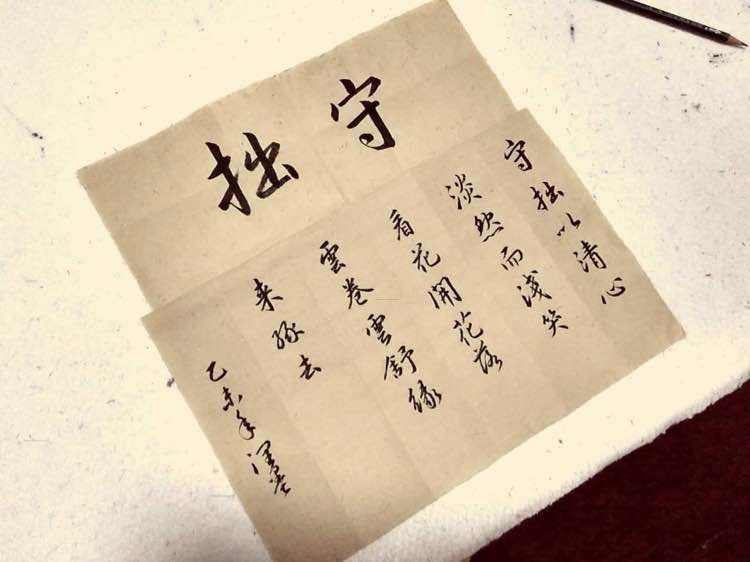 守拙
守拙以清心
淡然而浅笑
看花開花落
雲卷雲舒緣
来緣去
乙未年 墨